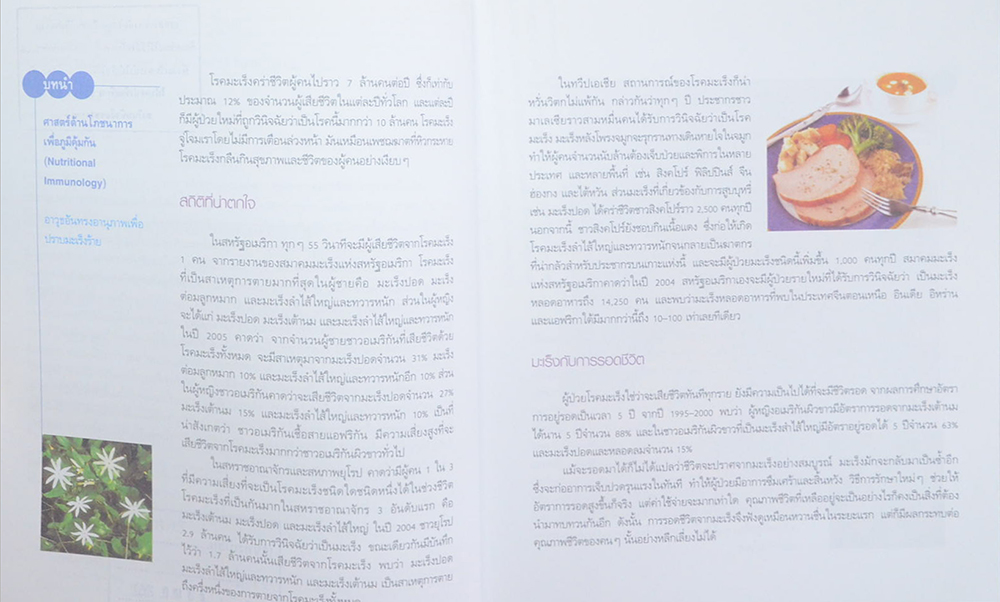 บทนำ
ศาสตร์ด้านโภชนาการ
เพื่อภูมิคุ้มกัน
(Nutritional
Immunology)
อาวุธอันทรงอานุภาพเพื่อ
ปราบมะเร็งร้าย
โรคมะเร็งคร่าชีวิตผู้คนไปราว 7 ล้านคนต่อปี ซึ่งก็เท่ากับ
ประมาณ 12% ของจำนวนผู้เสียชีวิตในแต่ละปีทั่วโลก และแต่ละปี
ก็มีผู้ป่วยใหม่ที่ถูกวินิจฉัยว่าเป็นโรคนี้มากกว่า 10 ล้านคน โรคมะเร็ง
จู่โจมเราโดยไม่มีการเตือนล่วงหน้า มันเหมือนเพชฌฆาตที่หิวกระหาย
โรคมะเร็งกลืนกินสุขภาพและชีวิตของผู้คนอย่างเงียบๆ
สถิติที่น่าตกใจ
ในสหรัฐอเมริกา ทุกๆ 55 วินาทีจะมีผู้เสียชีวิตจากโรคมะเร็ง
1 คน จากรายงานของสมาคมมะเร็งแห่งสหรัฐอเมริกา โรคมะเร็ง
ที่เป็นสาเหตุการตายมากที่สุดในผู้ชายคือ มะเร็งปอด มะเร็ง
ต่อมลูกหมาก และมะเร็งลำไส้ใหญ่และทวารหนัก ส่วนในผู้หญิง
จะได้แก่ มะเร็งปอด มะเร็งเต้านม และมะเร็งลำไส้ใหญ่และทวารหนัก
ในปี 2005 คาดว่า จากจำนวนผู้ชายชาวอเมริกันที่เสียชีวิตด้วย
โรคมะเร็งทั้งหมด จะมีสาเหตุมาจากมะเร็งปอดจำนวน 31% มะเร็ง
ต่อมลูกหมาก 10% และมะเร็งลำไส้ใหญ่และทวารหนักอีก 10% ส่วน
ในผู้หญิงชาวอเมริกันคาดว่าจะเสียชีวิตจากมะเร็งปอดจำนวน 27%
มะเร็งเต้านม 15% และมะเร็งลำไส้ใหญ่และทวารหนัก 10% เป็นที่
น่าสังเกตว่า ชาวอเมริกันเชื้อสายแอฟริกัน มีความเสี่ยงสูงที่จะ
เสียชีวิตจากโรคมะเร็งมากกว่าชาวอเมริกันผิวขาวทั่วไป
ในสหราชอาณาจักรและสหภาพยุโรป คาดว่ามีผู้คน 1 ใน 3
ที่มีความเสี่ยงที่จะเป็นโรคมะเร็งชนิดใดชนิดหนึ่งได้ในช่วงชีวิต
โรคมะเร็งที่เป็นกันมากในสหราชอาณาจักร 3 อันดับแรก คือ
มะเร็งเต้านม มะเร็งปอด และมะเร็งลำไส้ใหญ่ ในปี 2004 ชาวยุโรป
2.9 ล้านคน ได้รับการวินิจฉัยว่าเป็นมะเร็ง ขณะเดียวกันมีบันทึก
ไว้ว่า 1.7 ล้านคนนั้นเสียชีวิตจากโรคมะเร็ง พบว่า มะเร็งปอด
มะเร็งลำไส้ใหญ่และทวารหนัก และมะเร็งเต้านม เป็นสาเหตุการตาย
ถึงครึ่งหนึ่งของการตายจากโรคมะเร็งทั้งหมด
ในทวีปเอเชีย สถานการณ์ของโรคมะเร็งก็น่า
หวั่นวิตกไม่แพ้กัน กล่าวกันว่าทุกๆ ปี ประชากรชาว
มาเลเซียราวสามหมื่นคนได้รับการวินิจฉัยว่าเป็นโรค
มะเร็ง มะเร็งหลังโพรงจมูกจะลุกลามทางเดินหายใจในจมูก
ทำให้ผู้คนจำนวนนับล้านต้องเจ็บป่วยและพิการในหลาย
ประเทศ และหลายพื้นที่ เช่น สิงคโปร์ ฟิลิปปินส์ จีน
ฮ่องกง และไต้หวัน ส่วนมะเร็งที่เกี่ยวข้องกับการสูบบุหรี่
เช่น มะเร็งปอด ได้คร่าชีวิตชาวสิงคโปร์ราว 2,500 คนทุกปี
นอกจากนี้ ชาวสิงคโปร์ยังชอบกินเนื้อแดง ซึ่งก่อให้เกิด
โรคมะเร็งลำไส้ใหญ่และทวารหนักจนกลายเป็นฆาตกร
ที่น่ากลัวสำหรับประชากรบนเกาะแห่งนี้ และจะมีผู้ป่วยมะเร็งชนิดนี้เพิ่มขึ้น 1,000 คนทุกปี สมาคมมะเร็ง
แห่งสหรัฐอเมริกาคาดว่าในปี 2004 สหรัฐอเมริกาเองจะมีผู้ป่วยรายใหม่ที่ได้รับการวินิจฉัยว่า เป็นมะเร็ง
หลอดอาหารถึง 14,250 คน และพบว่ามะเร็งหลอดอาหารที่พบในประเทศจีนตอนเหนือ อินเดีย อิหร่าน
และแอฟริกาใต้มีมากกว่านี้ถึง 10-100 เท่าเลยทีเดียว
มะเร็งกับการรอดชีวิต
ผู้ป่วยโรคมะเร็งใช่ว่าจะเสียชีวิตทันทีทุกราย ยังมีความเป็นไปได้ที่จะมีชีวิตรอด จากผลการศึกษาอัตรา
การอยู่รอดเป็นเวลา 5 ปี จากปี 1995-2000 พบว่า ผู้หญิงอเมริกันผิวขาวมีอัตราการรอดจากมะเร็งเต้านม
ได้นาน 5 ปีจำนวน 88% และในชาวอเมริกันผิวขาวที่เป็นมะเร็งลำไส้ใหญ่มีอัตราอยู่รอดได้ 5 ปีจำนวน 63%
และมะเร็งปอดและหลอดลมจำนวน 15%
แม้จะรอดมาได้ก็ไม่ได้แปลว่าชีวิตจะปราศจากมะเร็งอย่างสมบูรณ์ มะเร็งมักจะกลับมาเป็นซ้ำอีก
ซึ่งจะก่ออาการเจ็บปวดรุนแรงในทันที ทำให้ผู้ป่วยมีอาการซึมเศร้าและสิ้นหวัง วิธีการรักษาใหม่ๆ ช่วยให้
อัตราการรอดสูงขึ้นก็จริง แต่ค่าใช้จ่ายจะมากเท่าใด คุณภาพชีวิตที่เหลืออยู่จะเป็นอย่างไรก็คงเป็นสิ่งที่ต้อง
นำมาทบทวนกันอีก ดังนั้น การรอดชีวิตจากมะเร็งจึงฟังดูเหมือนหวานชื่นในระยะแรก แต่ก็มีผลกระทบต่อ
คุณภาพชีวิตของคนๆ นั้นอย่างหลีกเลี่ยงไม่ได้